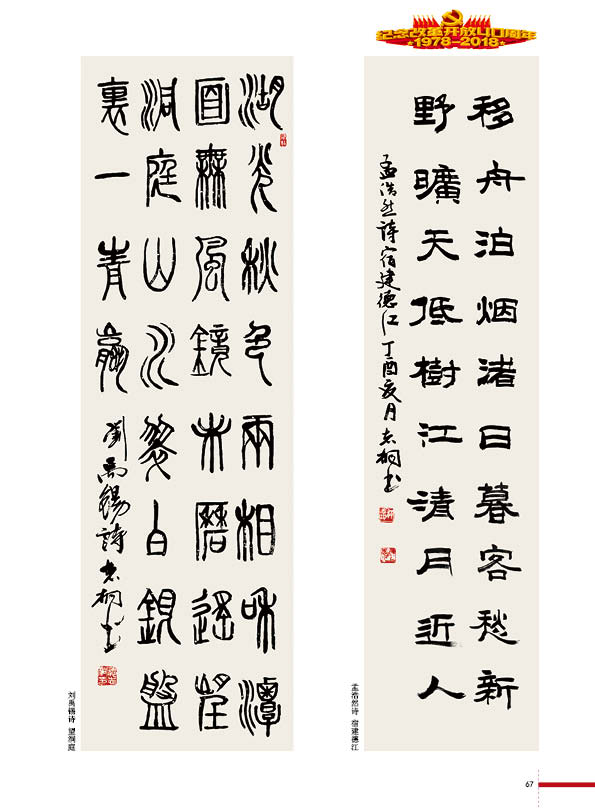 纪念改革开放40周年
1978-2018
移舟泊烟渚日暮客愁新
野曠天低樹江清月近人
孟浩然詩宿建德江丁酉夏月桐书
湖光秋色兩相和潭
面無風鏡未磨遥望
洞庭山水翠白銀盤
裏一青螺
劉禹锡詩桐书
孟浩然诗 宿建德江
刘禹锡诗 望洞庭
67